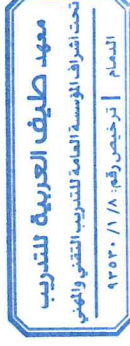 معهد طيف العربية للتدريب
تحت أشراف المؤسسة العامة للتدريب التقني والمهني
الدمام | ترخيص رقم: ٩٢٥٣٠ / ١ / ٨